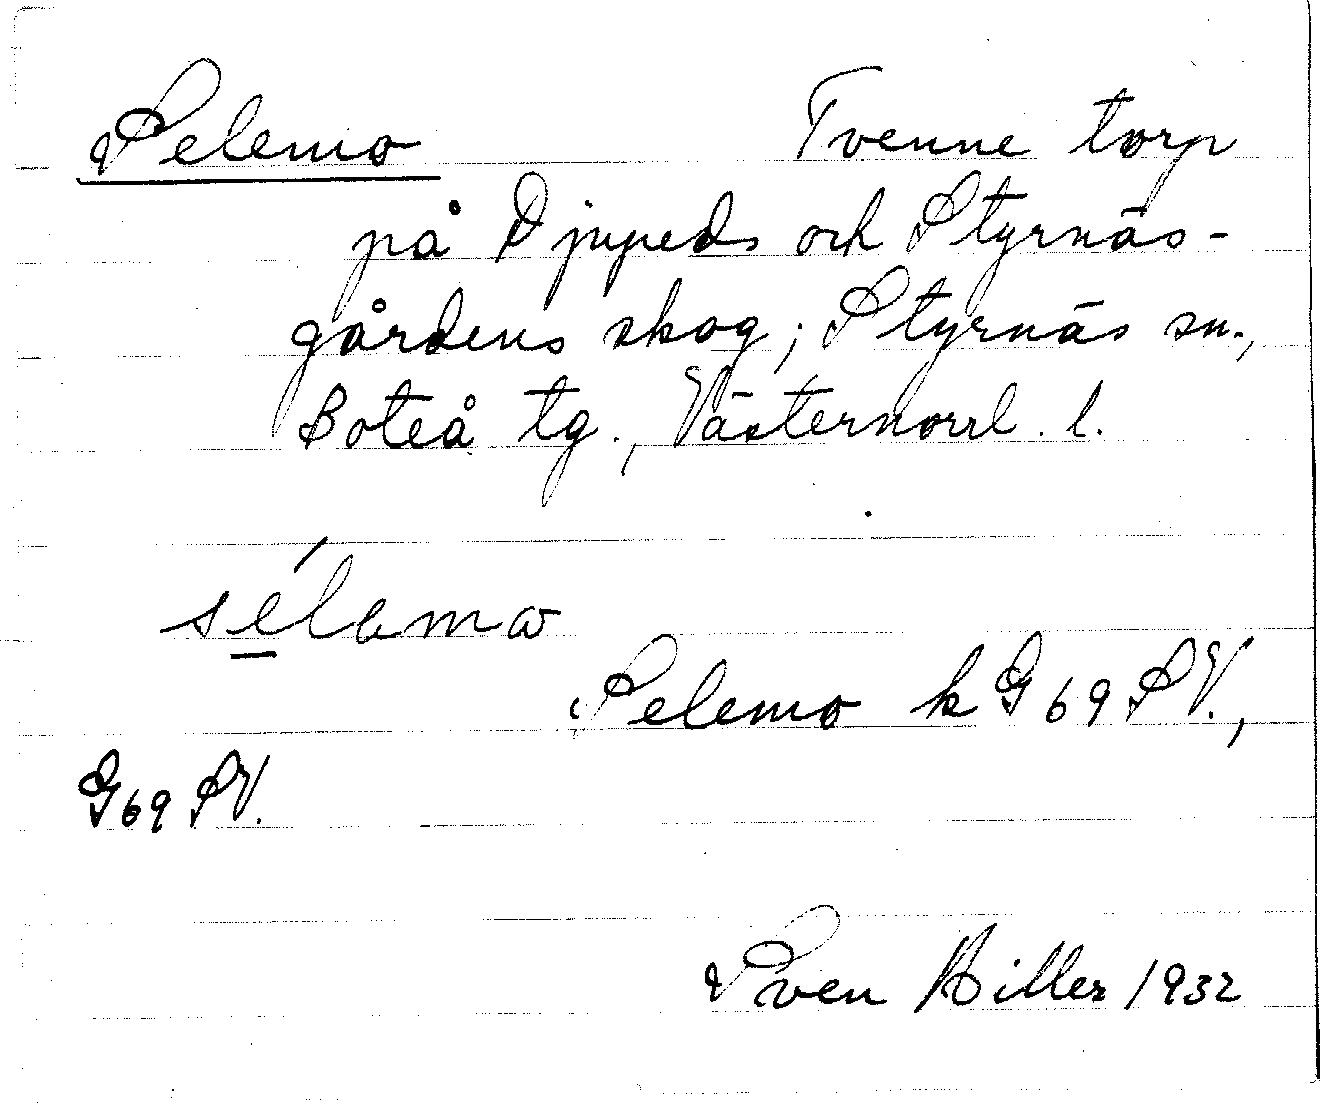 Selemo Tvenne torp
på Djupeds och Styrnäs-
gårdens skog; Styrnäs sn.,
Boteå tg., Västernorrl. l.
sélamω
Selemo k G 69 SV.,
G 69 SV.
Sven Hiller 1932